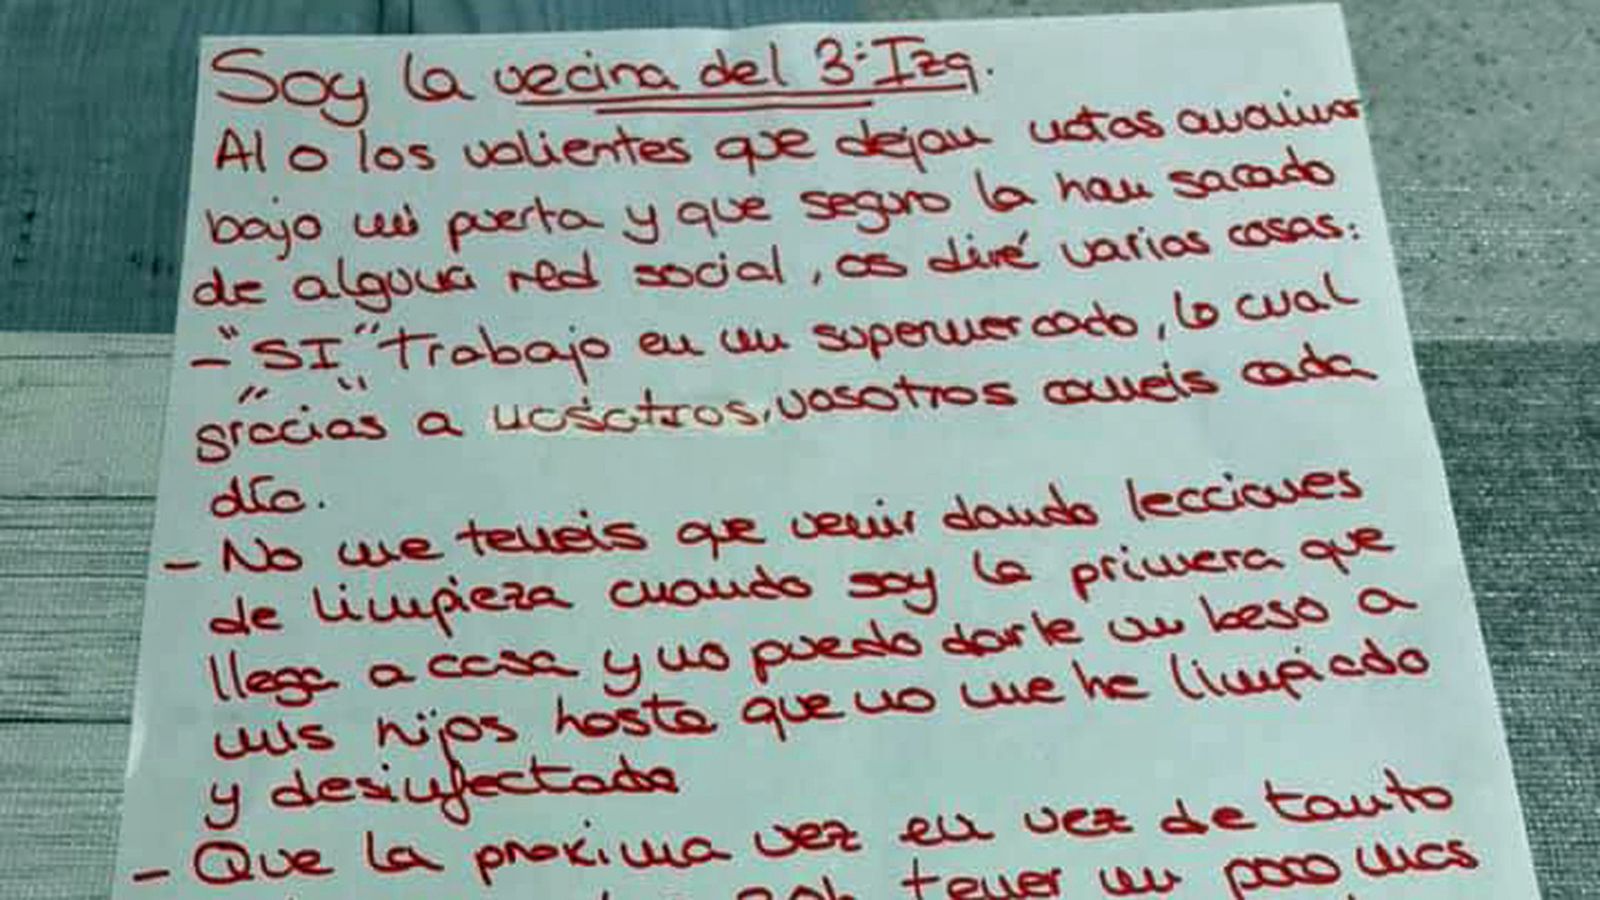 Soy la vecina del 3:Izq.
Al o los valientes que dejan notas anonimas
bajo mi puerta y que seguro la han sacado
de alguna red social, os diré varias cosas:
- "SI" Trabajo en un supermercado, lo cual
"gracias" a nosotros, vosotros comeis cada
día.
- No me teneis que venir dando lecciones
de limpieza cuando soy la primera que
llega a casa y no puedo darle un beso a
mis hijos hasta que no me he limpiado
y desinfectado
- Que la proxima vez en vez de tanto
20h tener un poco mas